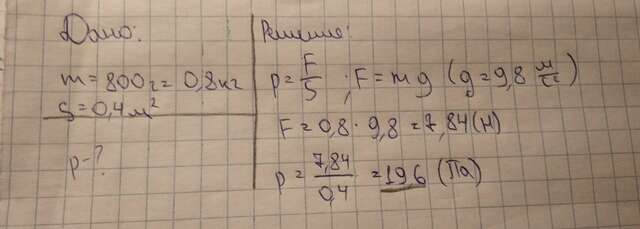 Дано:
m = 800 г = 0,8 кг
S = 0,4 м²
p - ?
Решение:
p = F/S ; F = mg (g = 9,8 м/с²)
F = 0,8 · 9,8 = 7,84 (Н)
p = 7,84/0,4 = 196 (Па)